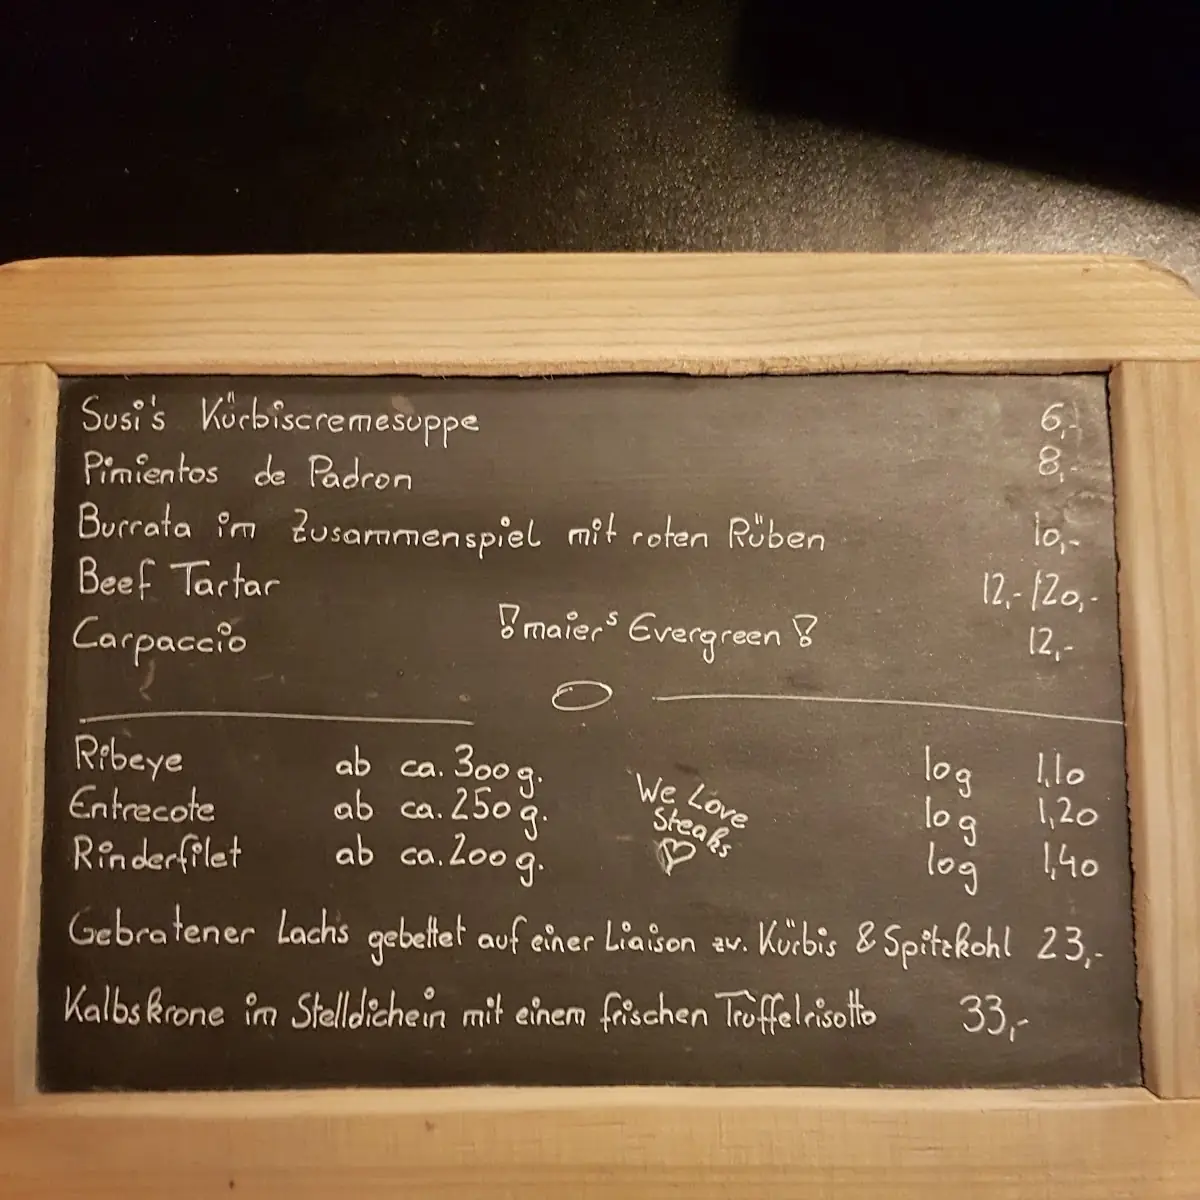 Susi's Kürbiscremesuppe 6,-
Pimientos de Padron 8,-
Burrata im Zusammenspiel mit roten Rüben 10,-
Beef Tartar 12,-/20,-
Carpaccio !maier's Evergreen! 12,-
Ribeye ab ca. 300g. 10g 1,10
Entrecote ab ca. 250g. 10g 1,20
Rinderfilet ab ca. 200g. 10g 1,40
We Love
Steaks
Gebratener Lachs gebettet auf einer Liaison zw. Kürbis & Spitzkohl 23,-
Kalbskrone im Stelldichein mit einem frischen Trüffelrisotto 33,-